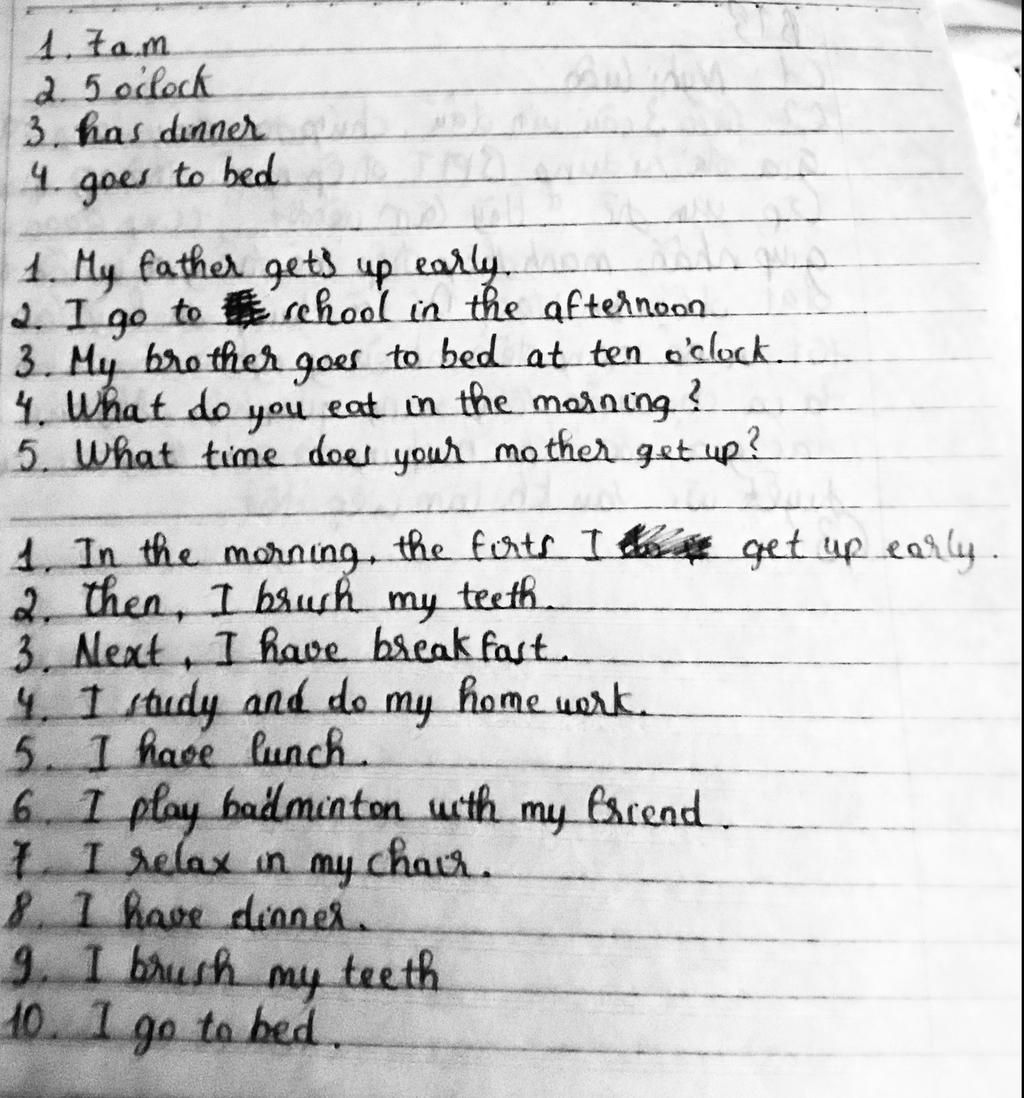 1. 7a.m
2. 5 o'clock
3. has dinner
4. goes to bed
1. My father gets up early.
2. I go to school in the afternoon
3. My brother goes to bed at ten o'clock.
4. What do you eat in the morning?
5. What time does your mother get up?
1. In the morning, the firts I get up early.
2. Then, I brush my teeth.
3. Next, I have breakfast.
4. I study and do my home work.
5. I have lunch.
6. I play badminton with my friend.
7. I relax in my chair.
8. I have dinner.
9. I brush my teeth
10. I go to bed.